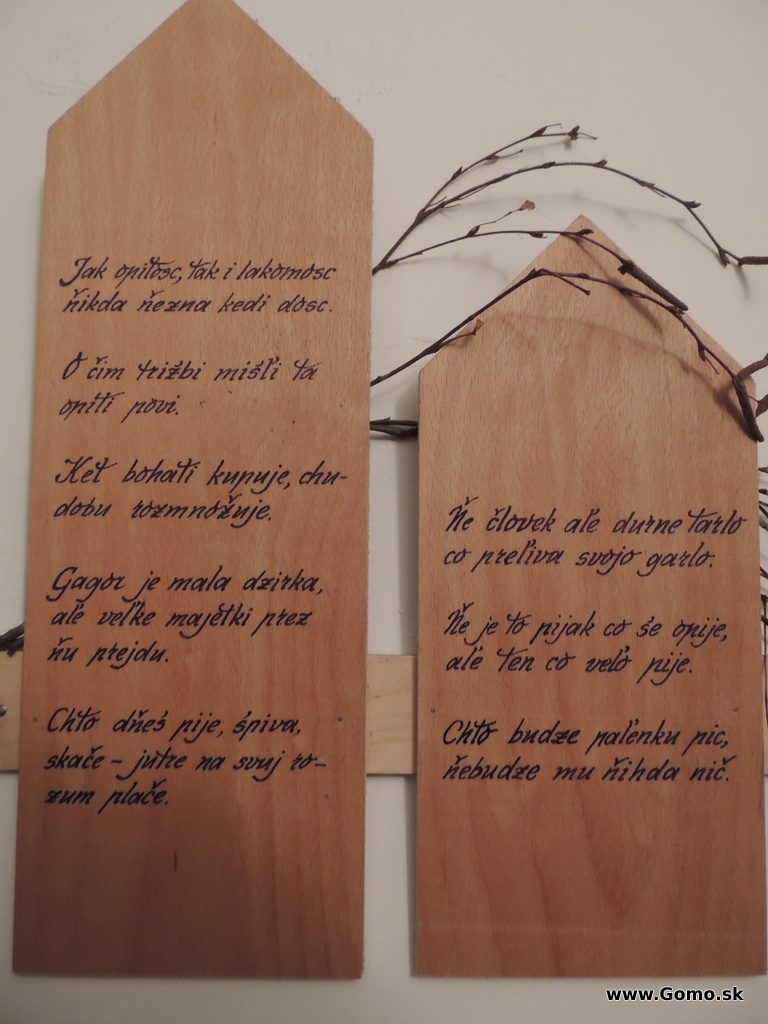 Jak opitosc, tak i lakomosc
ňikda ňezna kedi dosc.
O čim trižbi mišľi ta
opiti povi.
Ket bohati kupuje, chu-
dobu rozmnožuje.
Gagor je mala dzirka,
aľe veľke majetki prez
ňu prejdu.
Chto dňeś pije, śpiva,
skače - jutre na svuj ro-
zum plače.
Ňe človek aľe durne tarlo
co preľiva svojo garlo.
Ňe je to pijak co śe opije,
aľe ten co velo pije.
Chto budze paľenku pic,
ňebudze mu ňihda nič.
www.Gomo.sk